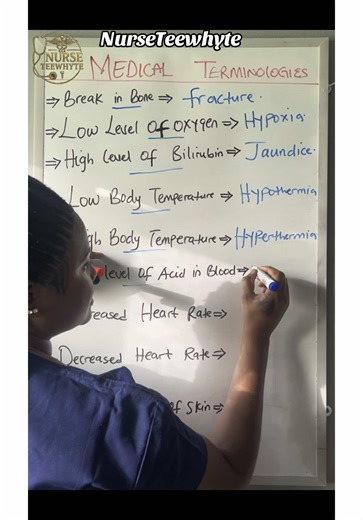 NurseTeewhyte
NURSE
TEEWHYTE
MEDICAL TERMINOLOGIES
⇒ Break in Bone ⇒ fracture.
⇒ Low Level of Oxygen ⇒ Hypoxia
⇒ High level of Bilirubin ⇒ Jaundice.
Low Body Temperature ⇒ Hypothermia
Body Temperature ⇒ Hyperthermia
level of Acid in Blood ⇒
Heart Rate ⇒
Decreased Heart Rate ⇒
of Skin ⇒